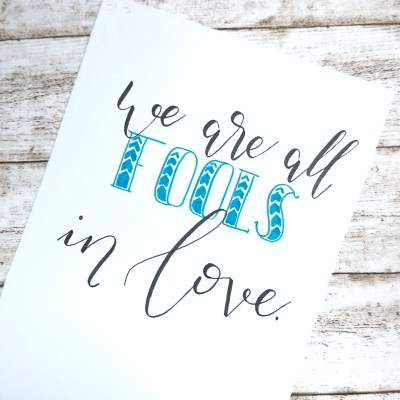 we are all
FOOLS
in love.